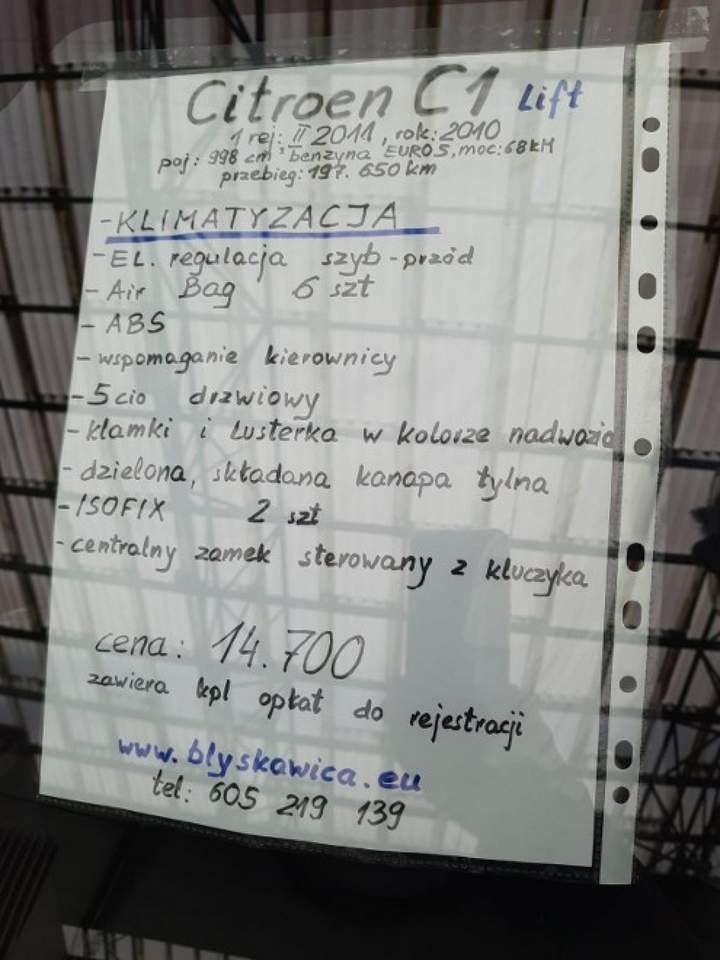 Citroen C1 Lift
1 rej: II 2011, rok: 2010
poj: 998 cm³ benzyna EURO5, moc: 68kM
przebieg: 197. 650 km
-KLIMATYZACJA
-EL. regulacja szyb-przód
- Air Bag 6 szt
- ABS
- wspomaganie kierownicy
-5cio drzwiowy
-klamki i lusterka w kolorze nadwozia
-dzielona, składana kanapa tylna
-ISOFIX 2 szt
-centralny zamek sterowany z kluczyka
cena: 14.700
zawiera kpl opłat do rejestracji
www.blyskawica.eu
tel: 605 219 139